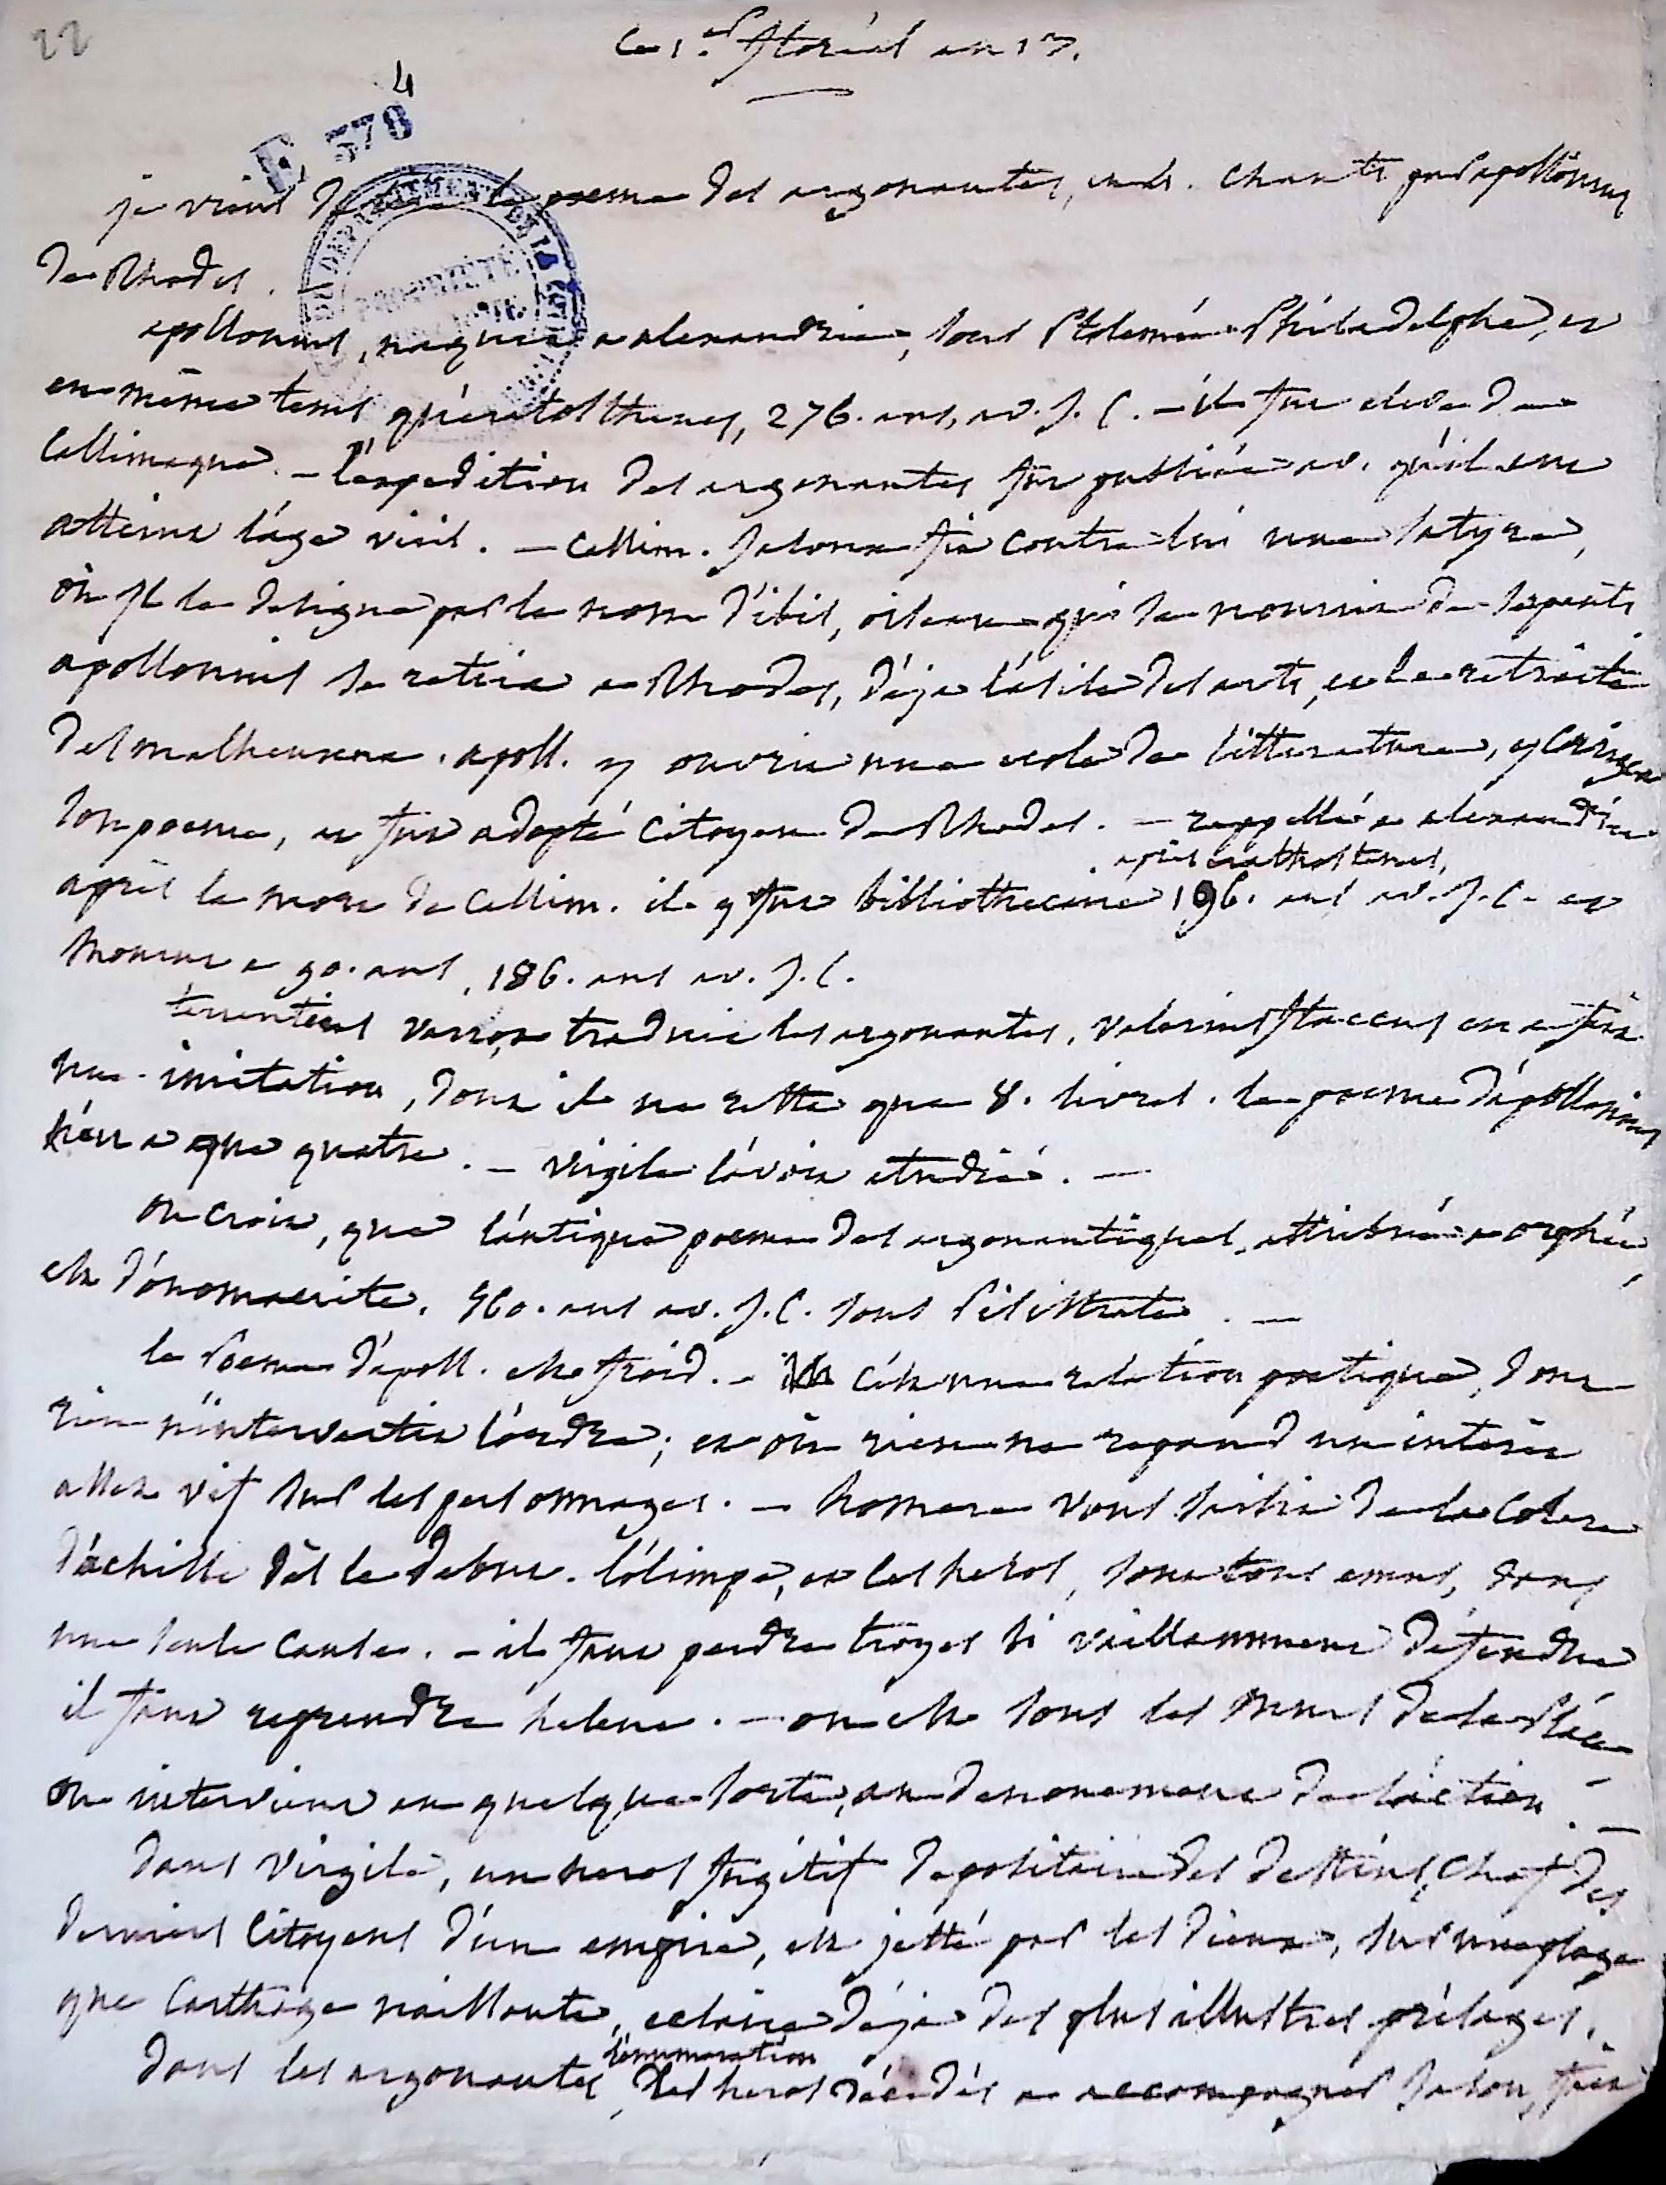 22
Ce 1.er floréal an 13.
4
E 378
je viens de lire le poeme des argonautes, en 4. chants par apollonius
de Rhodes.
apollonius, naquit a alexandrie, sous Ptolemée Philadelphe, et
en même tems qu'eratosthenes, 276. ans, av. J. C. - il fut eleve de
Callimaque. - l'expedition des argonautes fut publiée av. qu'il eut
atteint l'age viril. - Callim. jaloux fit contre lui une satyre,
où il le designe par le nom d'ibis, oiseau qui se nourrit de serpents
apollonius se retira a Rhodes, déja l'asile des arts, et la retraite
des malheureux. apoll. y ouvrit une ecole de litterature, y corrigea
son poeme, et fut adopté citoyen de Rhodes. - rappellé a alexandrie
après eratosthenes,
après la mort de Callim. il y fut bibliothecaire 196. ans av. J. C. et
mourut a 90. ans, 186. ans av. J. C.
terentius varron traduit les argonautes, valerius flaccus en a fait
une imitation, dont il ne reste que 8. livres. le poeme d'apollonius
n'en a que quatre. - virgile l'avoit etudié. -
on croit, que l'antique poeme des argonautiques, attribué a orphée,
est d'onomacrite, 560. ans av. J. C. sous Pisistrate. -
le Poeme d'apoll. est froid. - c'est une relation poetique, dont
rien n'intervertit l'ordre; et où rien ne repand un interêt
assez vif sur les personnages. - homere vous saisit de la colere
d'achille dès le debut. l'olimpe, et les heros, sont tous emus, dans
une seule cause. - il faut perdre troyes si vaillamment défendue
il faut reprendre helene. - on est sous les murs de la place
on intervient en quelque sorte, au denouement de l'action. -
dans virgile, un heros fugitif depositaire des destins, chef des
derniers citoyens d'un empire, est jetté par les dieux, sur une plage
que Carthage naissante, eclaire déja des plus illustres présages.
l'enumeration
dans les argonautes, des heros décidés a accompagner jason, fait